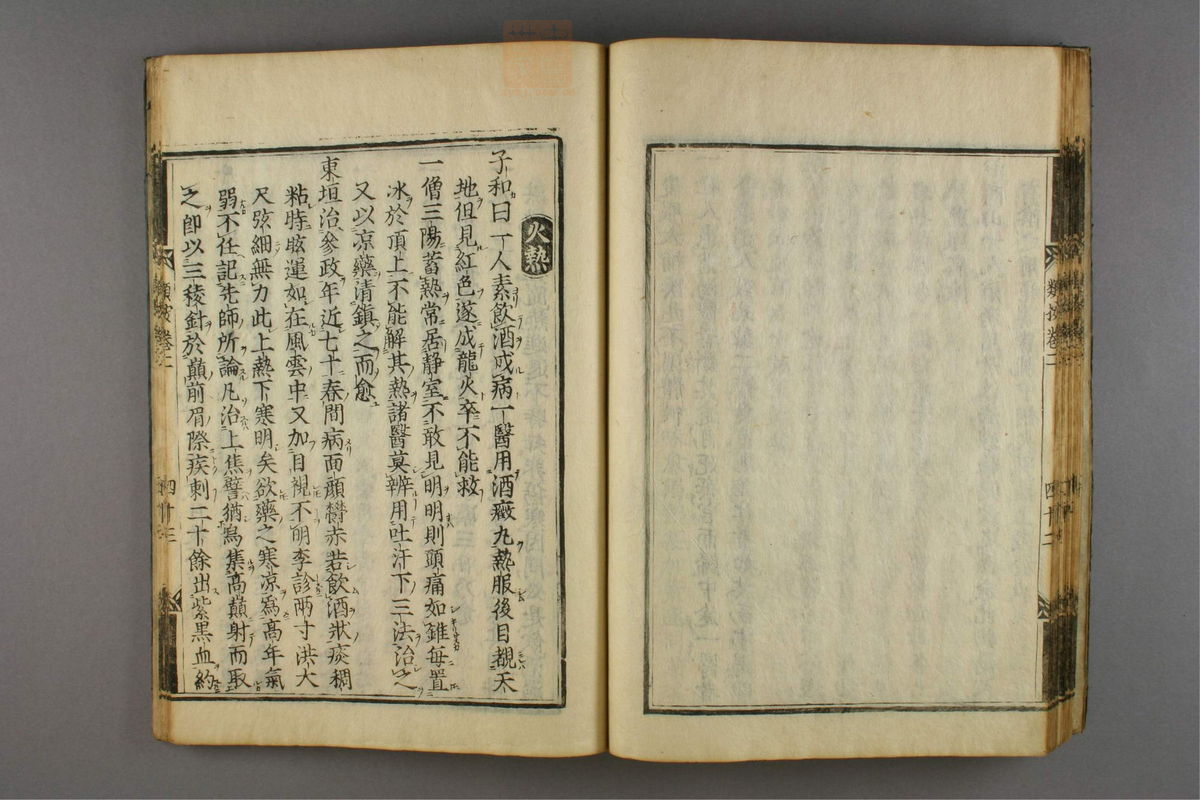 類按卷二
四十二
火熱
子和曰一人素飲酒成病一醫用酒癥丸熱服後目覩天
地但見紅色遂成龍火卒不能救
一僧三陽蓄熱常居靜室不敢見明明則頭痛如錐每置
冰於頂上不能解其熱諸醫莫辨用吐汗下三法治之
又以凉藥清鎮之而愈
東垣治參政年近七十春間病面顔欝赤若飲酒狀痰稠
粘時眩運如在風雲中又加目視不明李診兩寸洪大
尺弦細無力此上熱下寒明矣欲藥之寒凉爲高年氣
弱不任記先師所論凡治上焦譬猶鳥集高巔射而取
之卽以三稜針於巔前眉際疾刺二十餘出紫黑血約
類按卷二
四十三